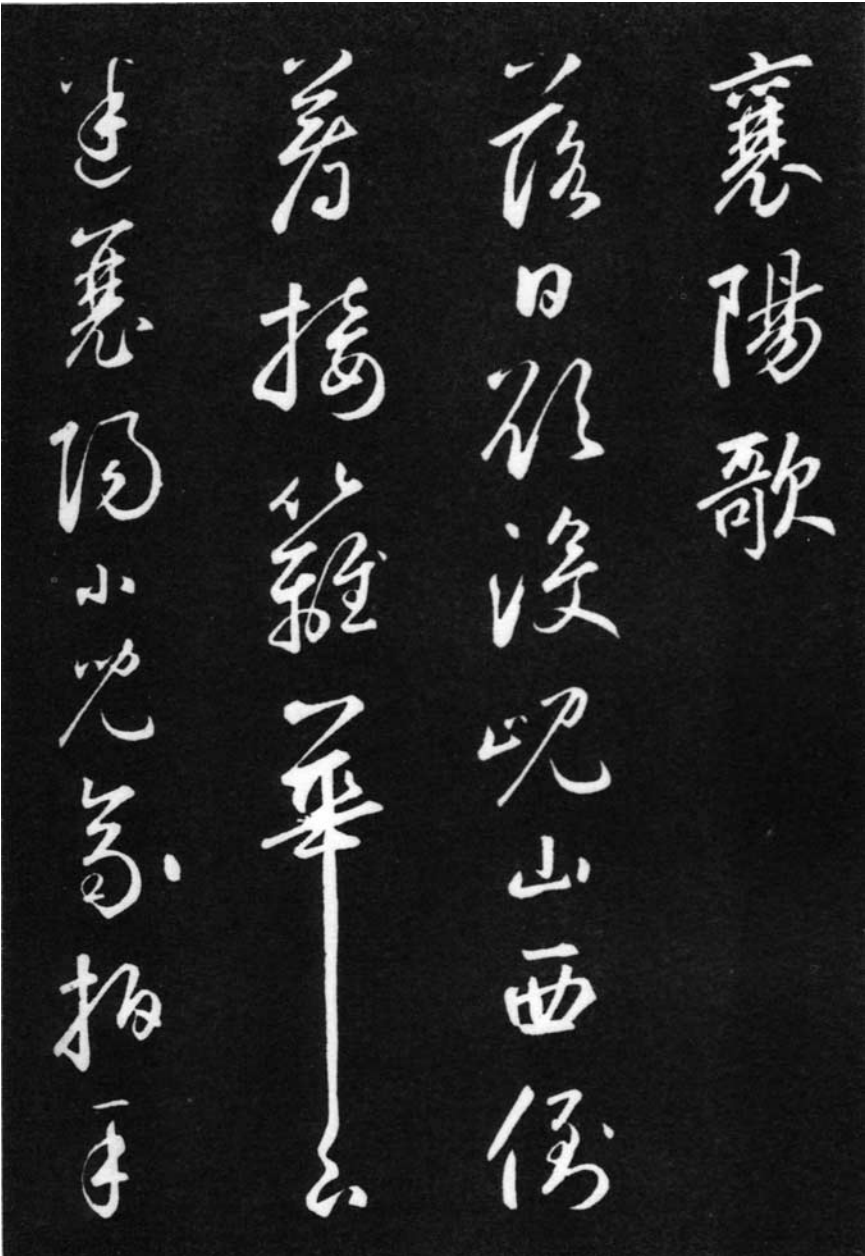 襄陽歌
落日欲没峴山西倒
着接籬華下
迷襄陽小兒齊拍手